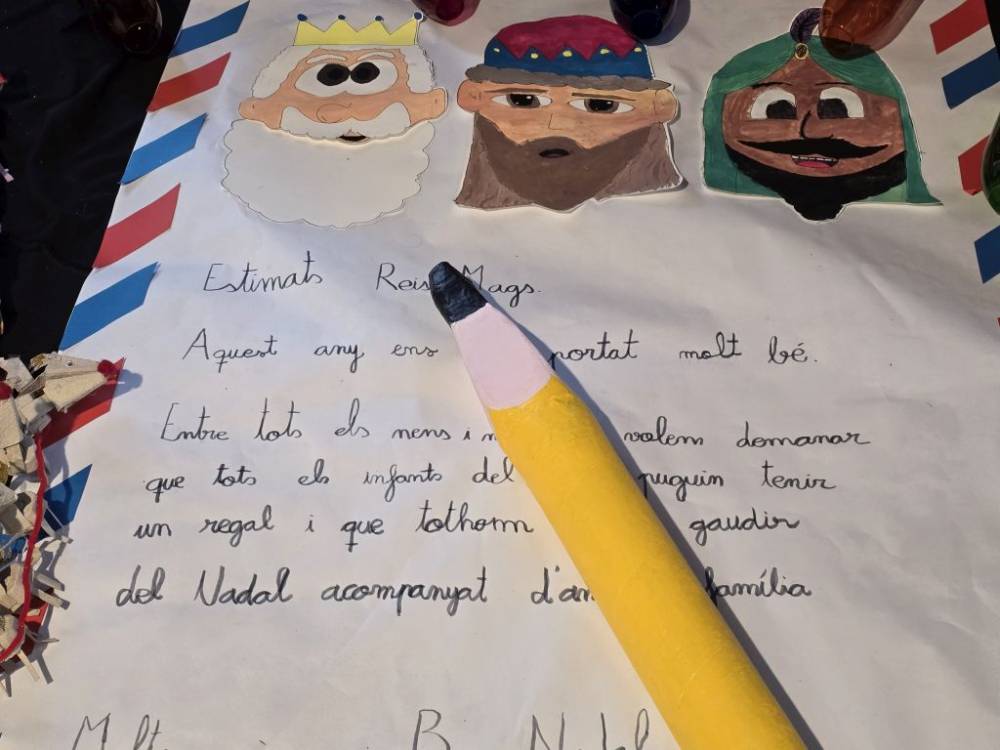 Estimats Reis Mags.
Aquest any ens portat molt bé.
Entre tots els nens i volem demanar
que tots els infants del puguin tenir
un regal i que tothom gaudir
del Nadal acompanyat família
Molt Nadal